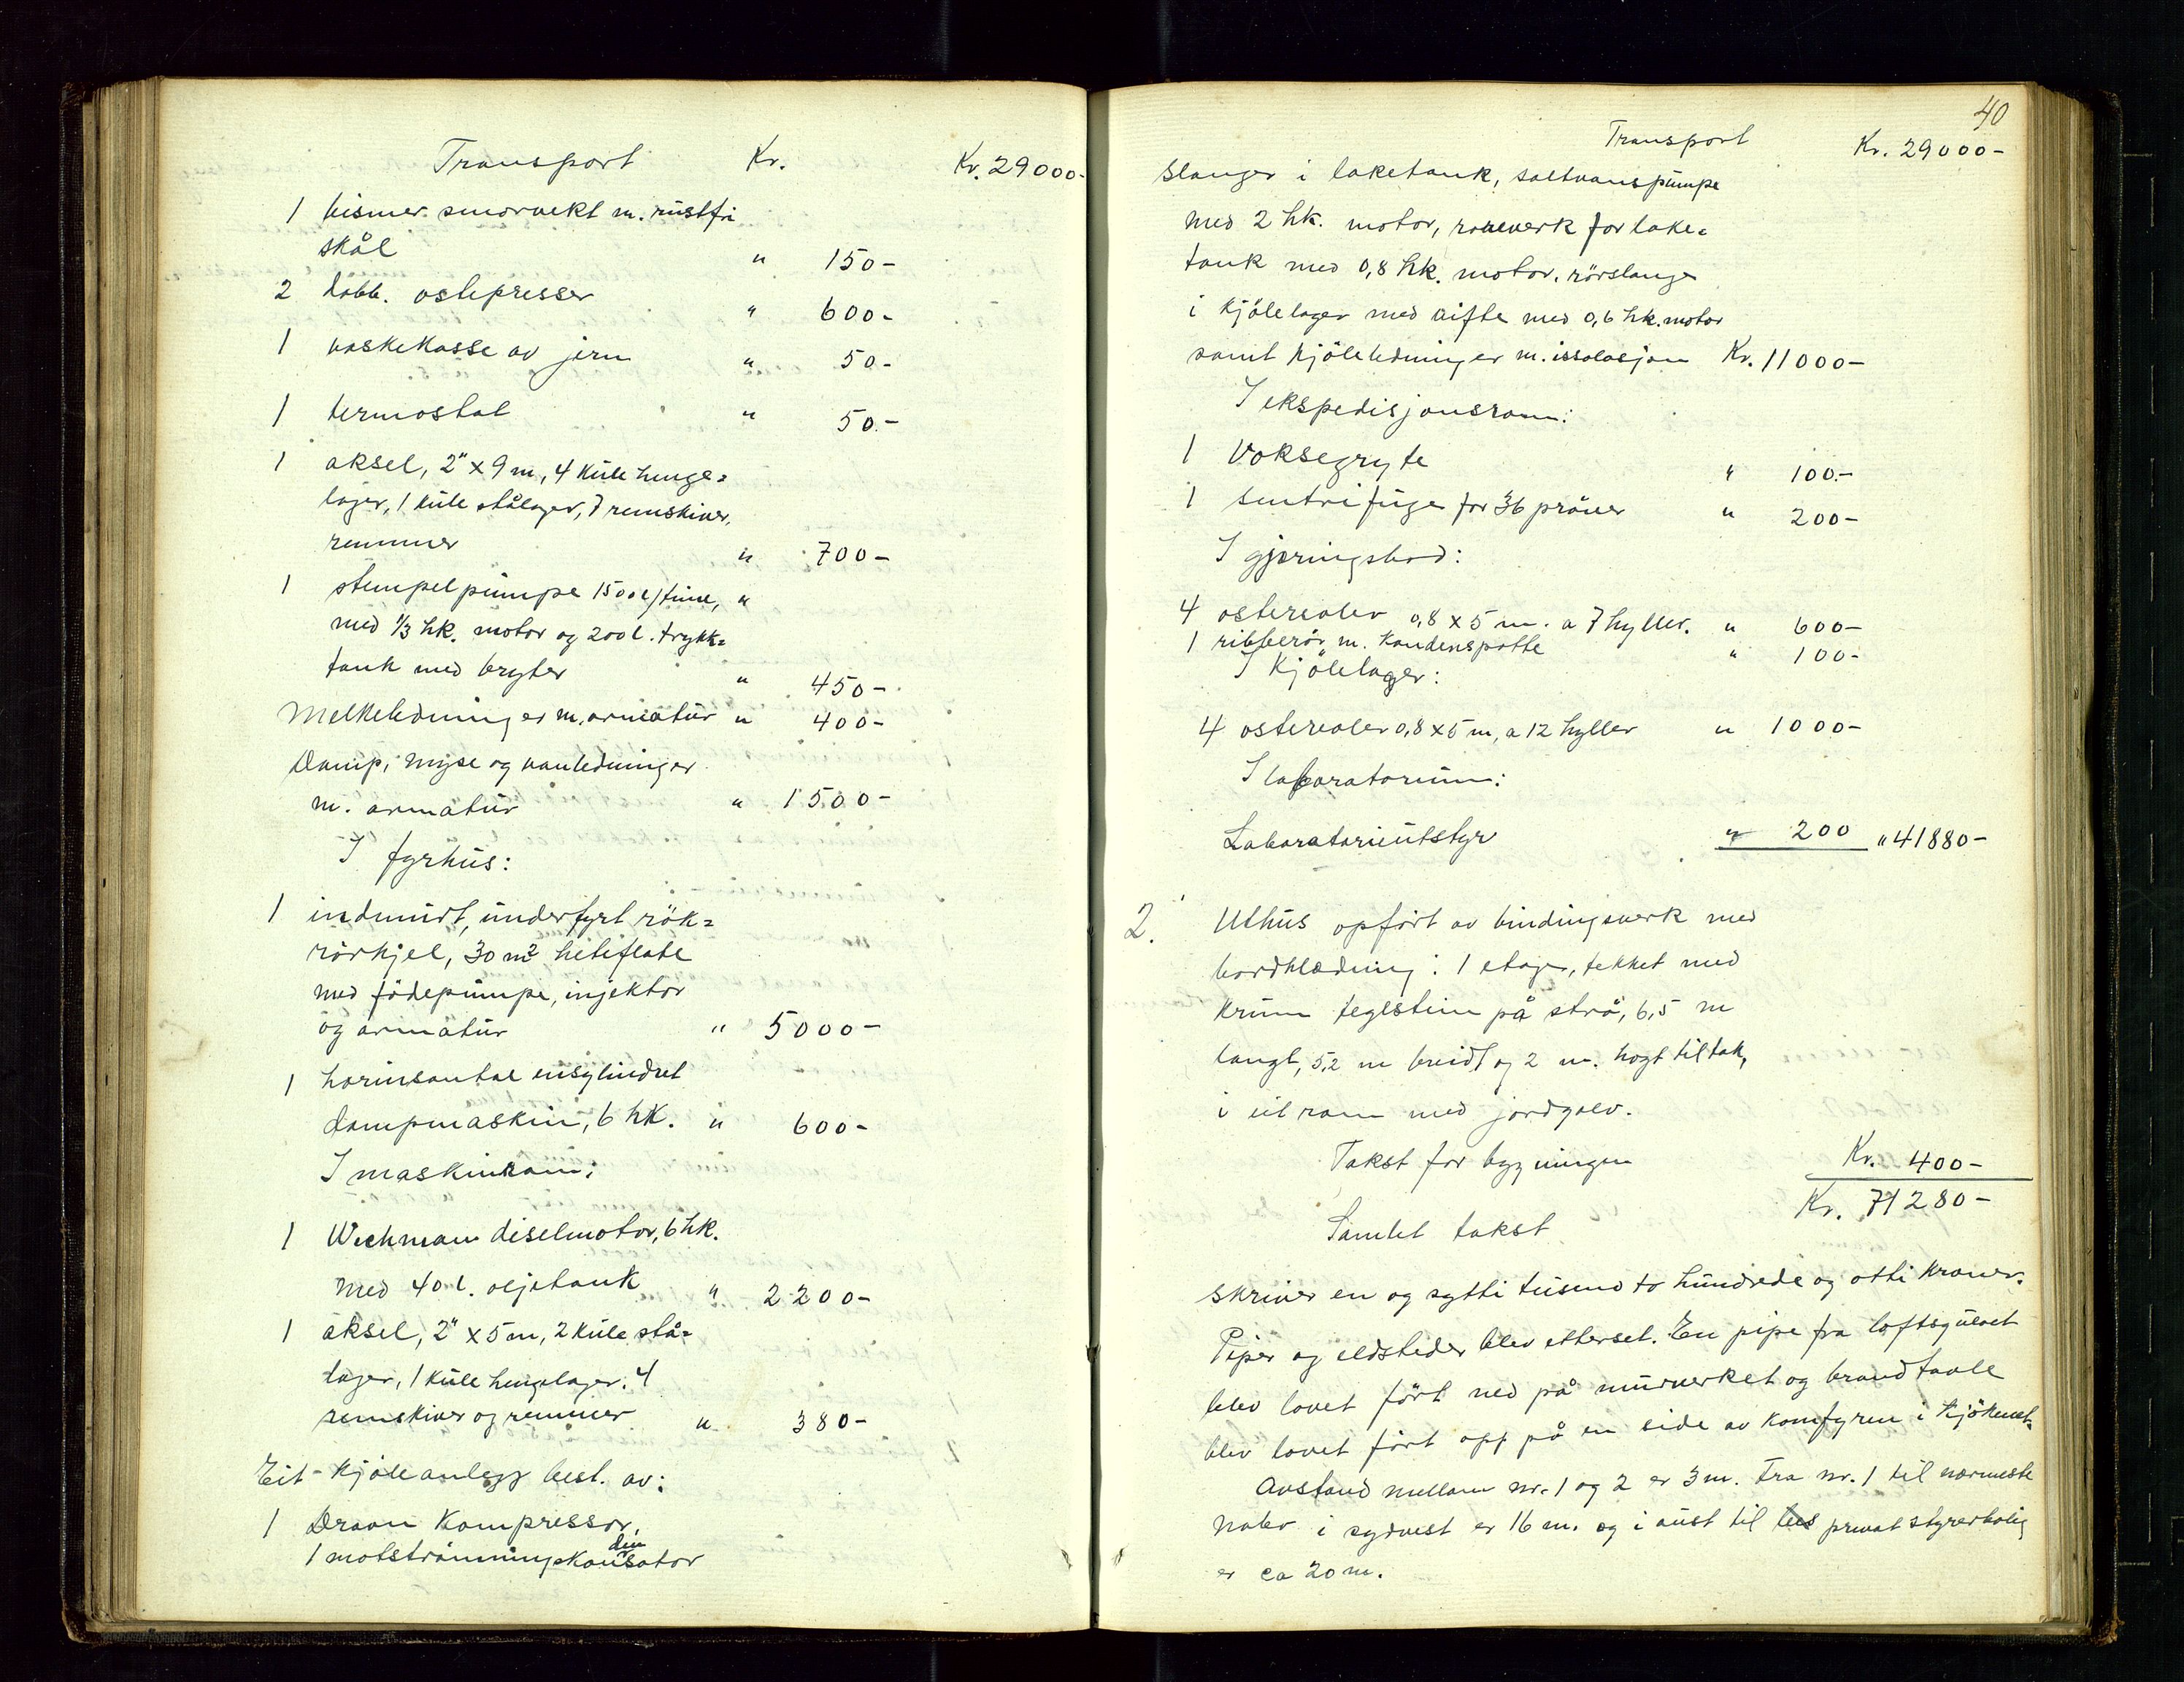 Transport Kr. Kr. 29000-
1 bismer smörvekt m. rustfri
skål " 150-
2 dobb. ostepresser " 600-
1 vaskekasse av jern " 50-
1 termostat " 50.-
1 aksel, 2" x 9 m, 4 kule henge=
lager, 1 kule stålager, 7 remskiver,
remmer " 700-
1 stempelpumpe 1500 l/time, "
med 1/3 hk. motor og 200 l. trykk=
tank med bryter " 450-
Melkeledninger m. armatur " 400-
Damp, myse og vanledninger
m. armatur " 1500-
I fyrhus:
1 indmurt, underfyrt rök=
rörkjel, 30 m² heteflate
med födepumpe, injektor
og armatur " 5000-
1 horinsontal ensylindret
dampmaskin, 6 hk. " 600-
I maskinrom:
1 Wichmann diselmotor, 6 hk.
med 40 l. oljetank " 2200-
1 aksel, 2" x 5 m, 2 kule stå=
lager, 1 kule hengelager, 4
remskiver og remmer " 380-
Eit kjöleanlegg best. av:
1 Draon Kompressor,
1 motströmningskondensator
40
Transport Kr. 29000-
Slanger i laketank, saltvanspumpe
med 2 hk. motor, röreverk for lake=
tank med 0,8 hk. motor, rörslange
i kjölelager med vifte med 0,6 hk. motor
samt kjöleledninger m. issolasjon Kr. 11000-
I ekspedisjonsrom:
1 Voksegryte " 100.-
1 sentrifuge for 36 pröver " 200-
I gjæringsbod:
4 ostereoler 0,8 x 5 m. a 7 hyller. " 600-
1 ribberör m. Kondenspotte " 100-
I Kjölelager:
4 ostereoler 0,8 x 5 m, a 12 hyller " 1000-
I laboratorium:
Laboratorieutstyr " 200 " 41880-
2. Uthus opfört av bindingsverk med
bordklædning: 1 etage, tekket med
krum teglstein på strå, 6,5 m
langt, 5,2 m breidt og 2 m. hogt til tak,
i eit rom med jordgolv.
Takst for bygningen Kr. 400-
Samlet takst Kr. 71280-
skriver en og sytti tusend to hundrede og otti kroner.
Piper og eldsteder blev etterset. En pipe fra loftsgulvet
blev lovet fört ned på murverket og brandtavle
blev lovet fört opp på en side av komfyren i kjökenet.
Avstand mellom nr. 1 og 2 er 3 m. Fra nr. 1 til nærmeste
nabo i sydvest er 16 m. og i aust til privat styrerbolig
er ca 20 m.